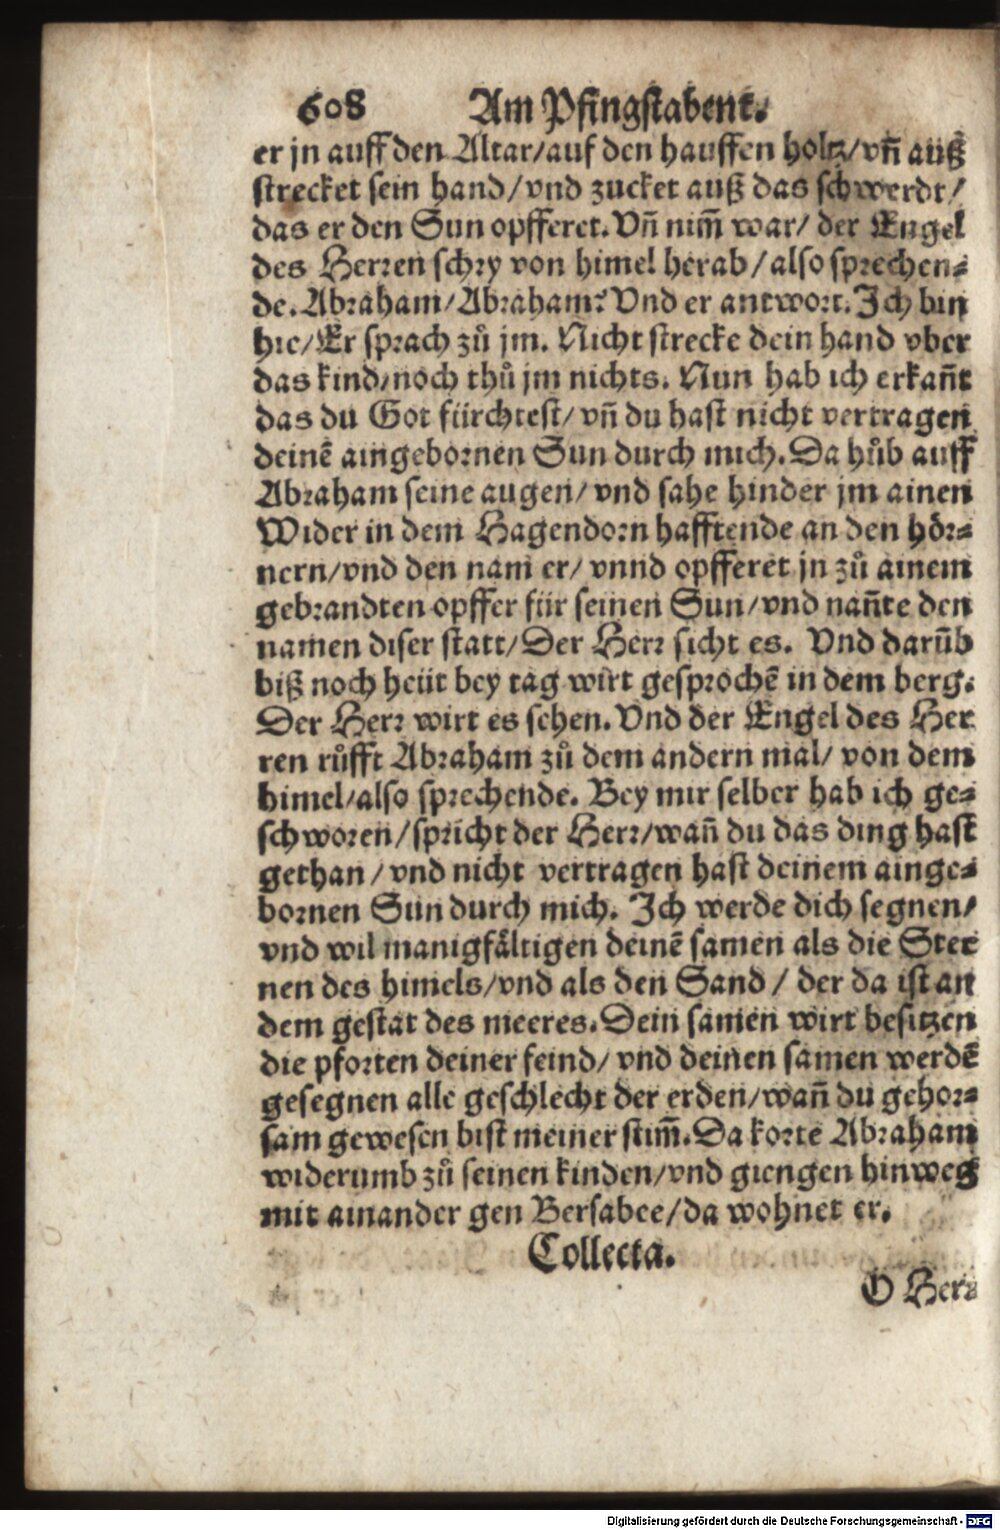 608 Am Pfingstabent.
er jn auff den Altar/auf den hauffen holtz/vñ auß
strecket sein hand/vnd zucket auß das schwerdt/
das er den Sun opfferet. Vñ nim̃ war/ der Engel
des Herren schry von himel herab/also sprechen⸗
de. Abraham/Abraham? Vnd er antwort. Ich bin
hie/Er sprach zů jm. Nicht strecke dein hand vber
das kind/noch thů jm nichts. Nun hab ich erkañt
das du Got fürchtest/vñ du hast nicht vertragen
deinẽ aingebornen Sun durch mich. Da hůb auff
Abraham seine augen/vnd sahe hinder jm ainen
Wider in dem Hagendorn hafftende an den hör⸗
nern/vnd den nam er/ vnnd opfferet jn zů ainem
gebrandten opffer für seinen Sun/vnd nañte den
namen diser statt/Der Herr sicht es. Vnd darũb
biß noch heüt bey tag wirt gesprochẽ in dem berg.
Der Herr wirt es sehen. Vnd der Engel des Her
ren růfft Abraham zů dem andern mal/ von dem
himel/also sprechende. Bey mir selber hab ich ge⸗
schworen/spricht der Herr/wañ du das ding hast
gethan/vnd nicht vertragen hast deinem ainge⸗
bornen Sun durch mich. Ich werde dich segnen/
vnd wil manigfältigen deinẽ samen als die Ster
nen des himels/vnd als den Sand/ der da ist an
dem gestat des meeres. Dein samen wirt besitzen
die pforten deiner feind/ vnd deinen samen werdẽ
gesegnen alle geschlecht der erden/wañ du gehor⸗
sam gewesen bist meiner stim̃. Da korte Abraham
widerumb zů seinen kinden/vnd giengen hinweg
mit ainander gen Bersabee/da wohnet er.
Collecta.
O Herr
Digitalisierung gefördert durch die Deutsche Forschungsgemeinschaft - DFG